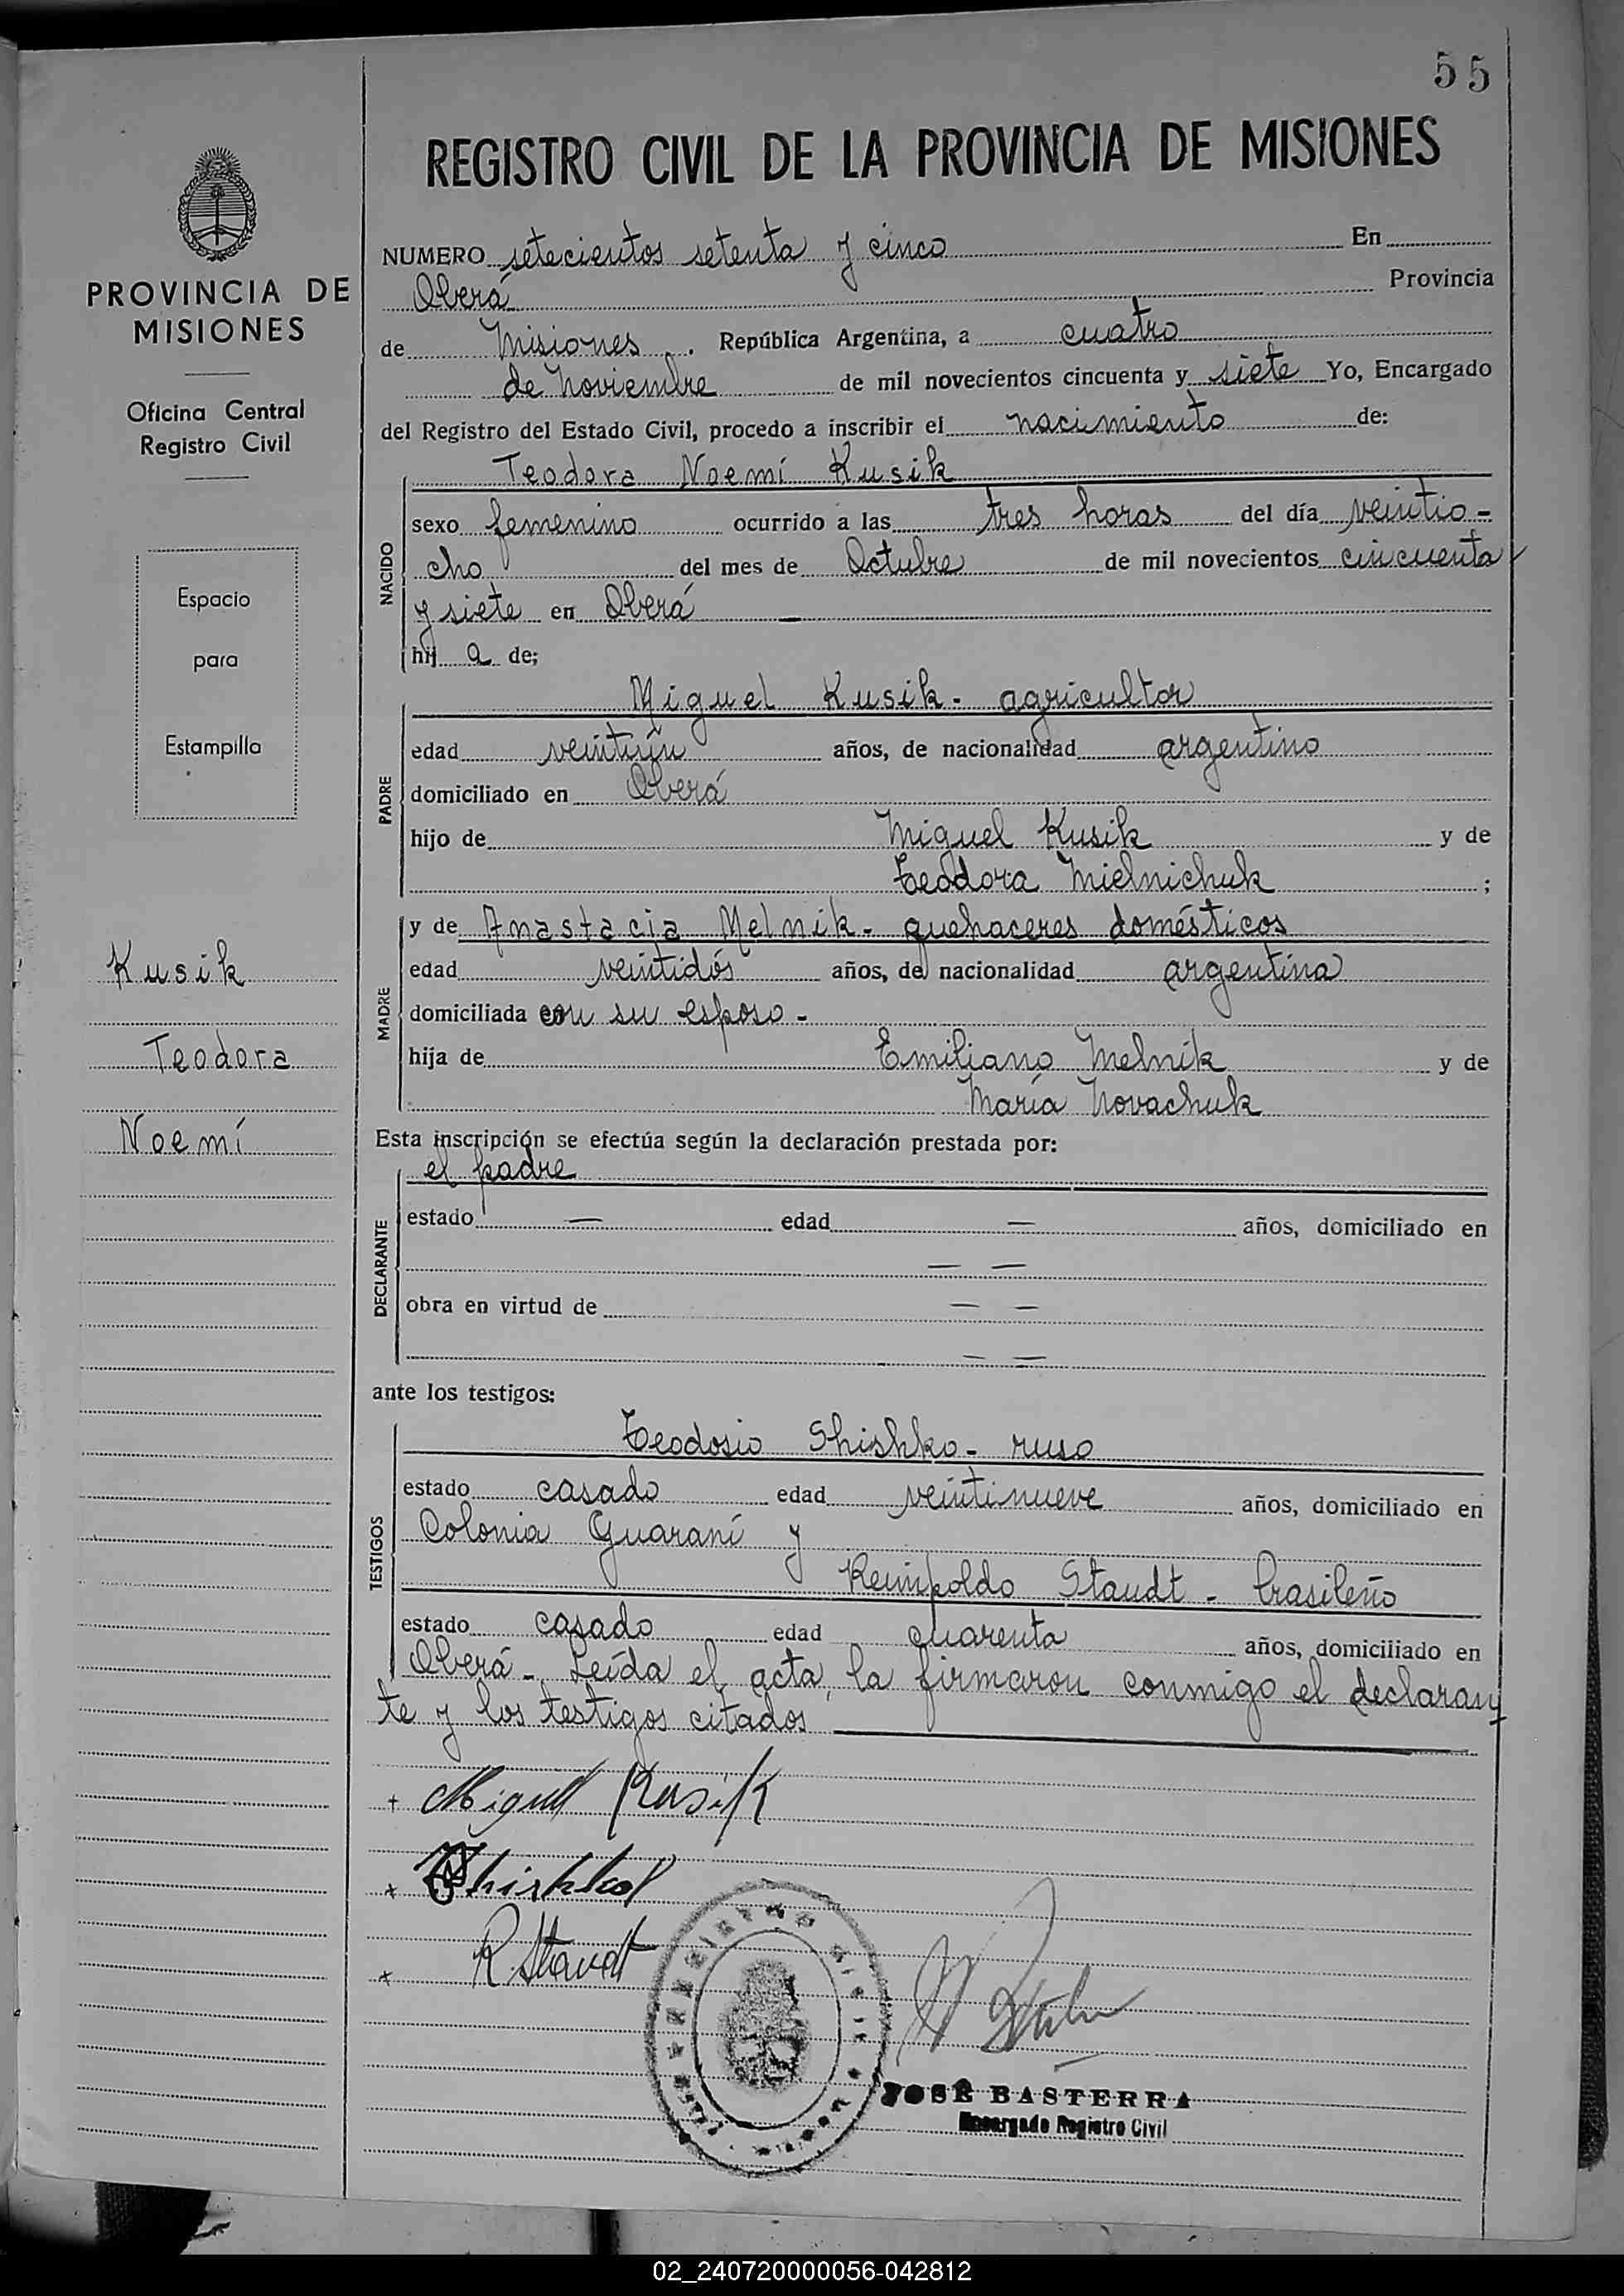 55
REGISTRO CIVIL DE LA PROVINCIA DE MISIONES
PROVINCIA DE
MISIONES
Oficina Central
Registro Civil
Espacio
para
Estampilla
Kusik
Teodora
Noemí
NUMERO setecientos setenta y cinco En
Oberá Provincia
de Misiones . República Argentina, a cuatro
de Noviembre de mil novecientos cincuenta y siete Yo, Encargado
del Registro del Estado Civil, procedo a inscribir el nacimiento de:
NACIDO
Teodora Noemí Kusik
sexo femenino ocurrido a las tres horas del día veintio-
cho del mes de Octubre de mil novecientos cincuenta
y siete en Oberá —
hij a de;
PADRE
Miguel Kusik - agricultor
edad veintiún años, de nacionalidad argentino
domiciliado en Oberá
hijo de Miguel Kusik y de
Teodora Mielnichuk ;
MADRE
y de Anastacia Melnik - quehaceres domésticos
edad veintidós años, de nacionalidad argentina
domiciliada con su esposo -
hija de Emiliano Melnik y de
María Novachuk
Esta inscripción se efectúa según la declaración prestada por:
DECLARANTE
el padre
estado — edad — años, domiciliado en
— —
obra en virtud de — —
— —
ante los testigos:
TESTIGOS
Teodosio Shishko - ruso
estado casado edad veintinueve años, domiciliado en
Colonia Guaraní y
Reinpoldo Staudt - brasileño
estado casado edad cuarenta años, domiciliado en
Oberá - Leída el acta, la firmaron conmigo el declaran
te y los testigos citados
+ Miguel Kusik
+ Shishko
+ R. Staudt
JOSÉ BASTERRA
Encargado Registro Civil
02_240720000056-042812